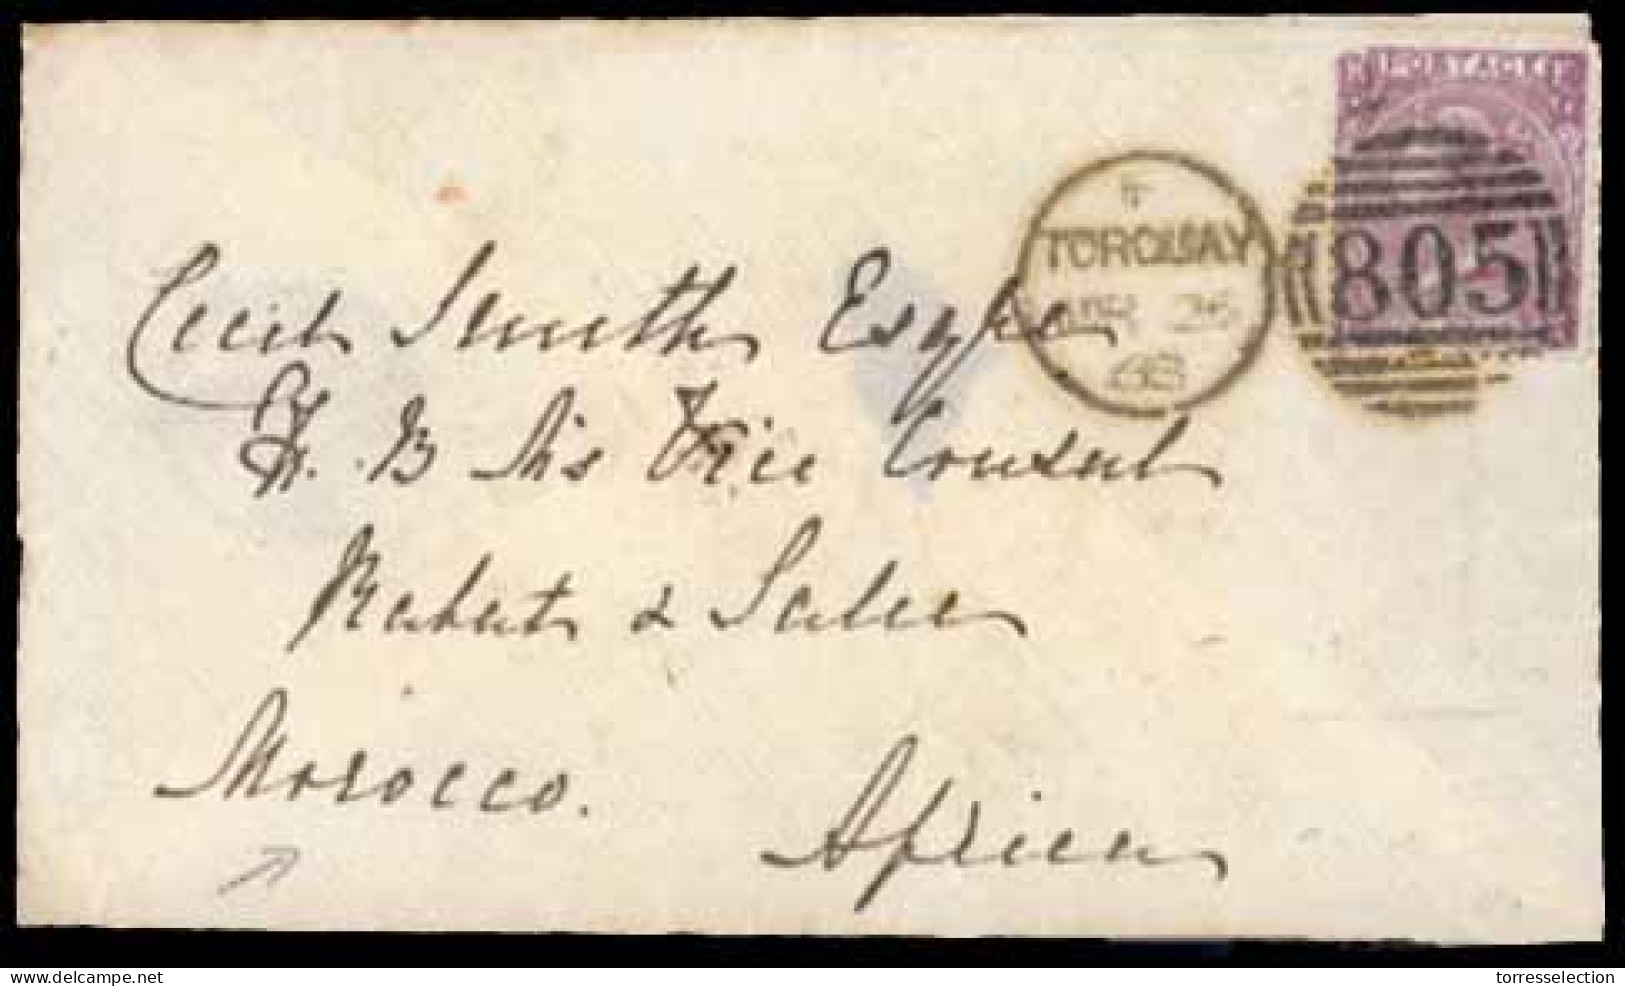 POSTAGE
TORQUAY
26
68
805
Cecil Smith Esqre
H. B. M's Vice Consul
Rabat & Salee
Morocco.
Africa
www.delcampe.net
torresselection